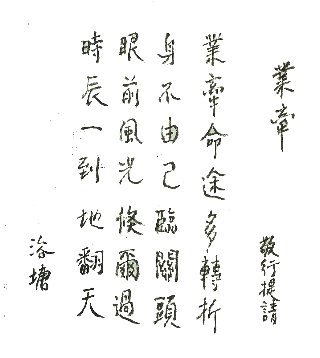 業牽
敬行提請
業牽命途多轉折
身不由己臨關頭
眼前風光倏爾過
時辰一到地翻天
洛塘